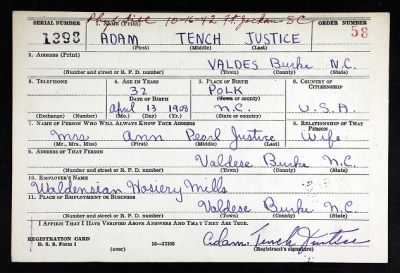 SERIAL NUMBER 1. NAME (Print) ORDER NUMBER
10-16-42 Ft. Jackson SC
1398 ADAM TENCH JUSTICE 58
(First) (Middle) (Last)
2. ADDRESS (Print)
VALDES Burke N.C.
(Number and street or R. F. D. number) (Town) (County) (State)
3. TELEPHONE 4. AGE IN YEARS 5. PLACE OF BIRTH 6. COUNTRY OF CITIZENSHIP
32 POLK
DATE OF BIRTH (Town or county)
April 13 1908 N.C. U.S.A.
(Exchange) (Number) (Mo.) (Day) (Yr.) (State or country)
7. NAME OF PERSON WHO WILL ALWAYS KNOW YOUR ADDRESS 8. RELATIONSHIP OF THAT PERSON
Mrs Ann Pearl Justice Wife
(Mr., Mrs., Miss) (First) (Middle) (Last)
9. ADDRESS OF THAT PERSON
Valdese Burke N.C.
(Number and street or R. F. D. number) (Town) (County) (State)
10. EMPLOYER'S NAME
Waldensian Hosiery Mills
11. PLACE OF EMPLOYMENT OR BUSINESS
Valdese Burke N.C.
(Number and street or R. F. D. number) (Town) (County) (State)
I AFFIRM THAT I HAVE VERIFIED ABOVE ANSWERS AND THAT THEY ARE TRUE.
REGISTRATION CARD
D. S. S. Form 1 (over) 16—17105 Adam Tench Justice
(Registrant's signature)